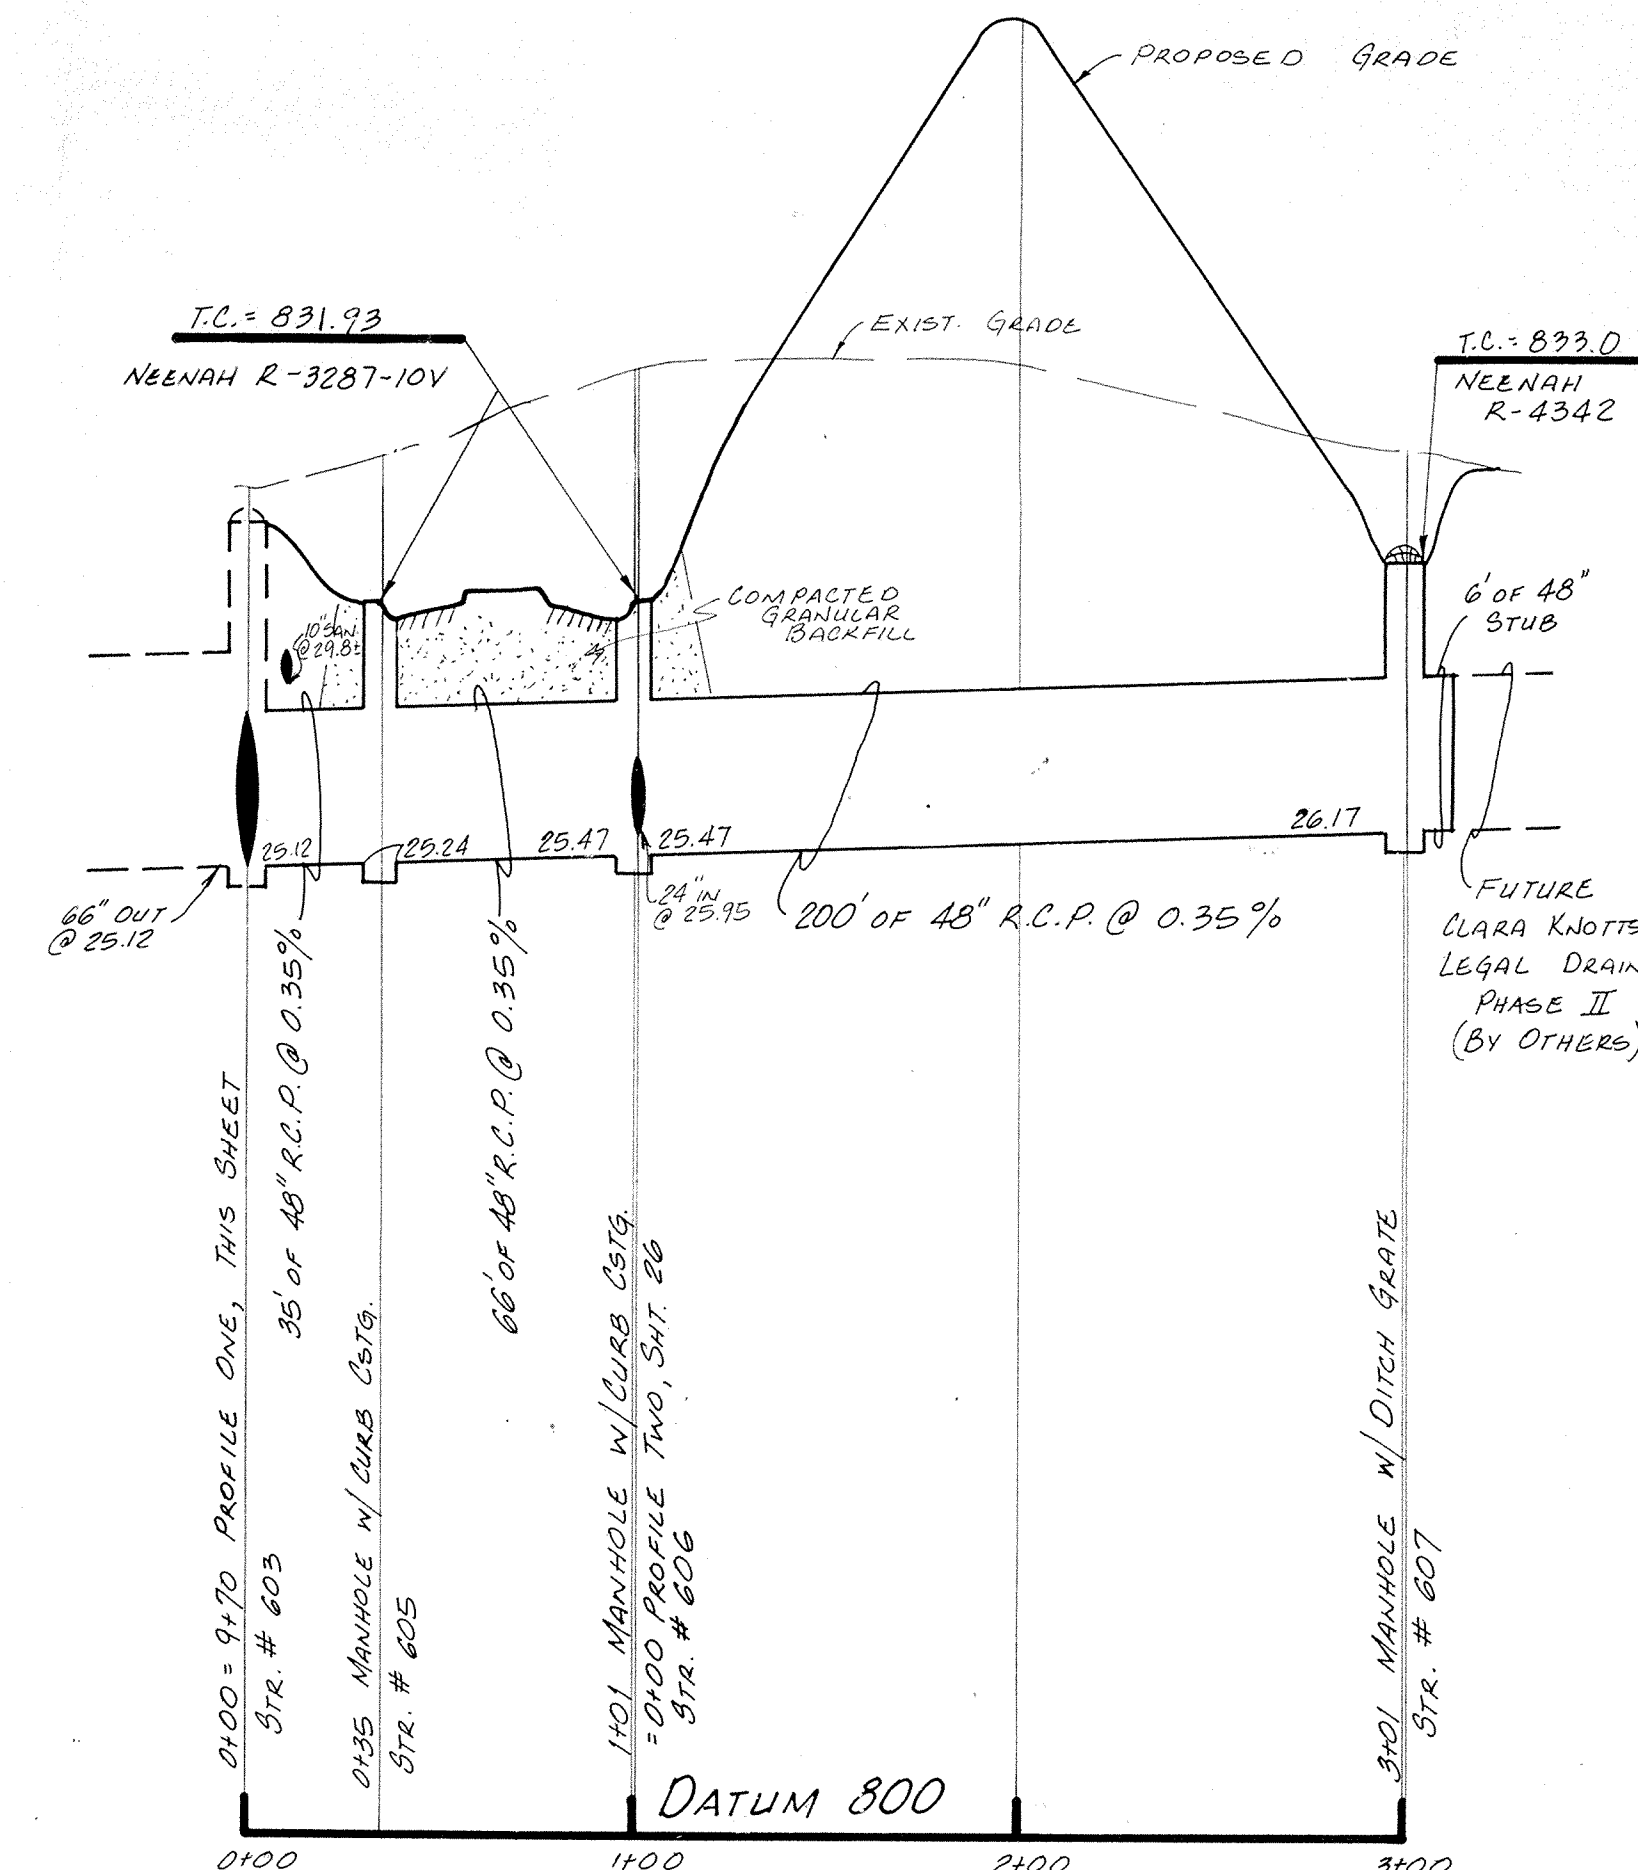 PROPOSED GRADE
T.C. = 831.93
NEENAH R-3287-10V
EXIST. GRADE
T.C. = 833.0
NEENAH
R-4342
COMPACTED
GRANULAR
BACKFILL
6' OF 48"
STUB
10" SAN
@ 29.8±
25.12
25.24
25.47
25.47
26.17
66" OUT
@ 25.12
24" IN
@ 25.95
200' OF 48" R.C.P. @ 0.35%
FUTURE
CLARA KNOTTS
LEGAL DRAIN
PHASE II
(BY OTHERS)
35' OF 48" R.C.P. @ 0.35%
66' OF 48" R.C.P. @ 0.35%
0+00 = 9+70 PROFILE ONE, THIS SHEET
STR. # 603
0+35 MANHOLE W/ CURB CSTG.
STR. # 605
1+01 MANHOLE W/ CURB CSTG.
= 0+00 PROFILE TWO, SHT. 26
STR. # 606
3+01 MANHOLE W/ DITCH GRATE
STR. # 607
DATUM 800
0+00
1+00
2+00
3+00